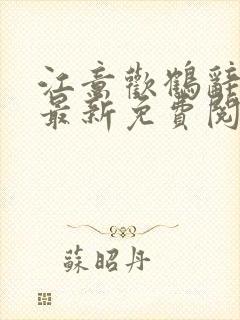 江童歡鶴辭
最新免費閱
蘇昭丹